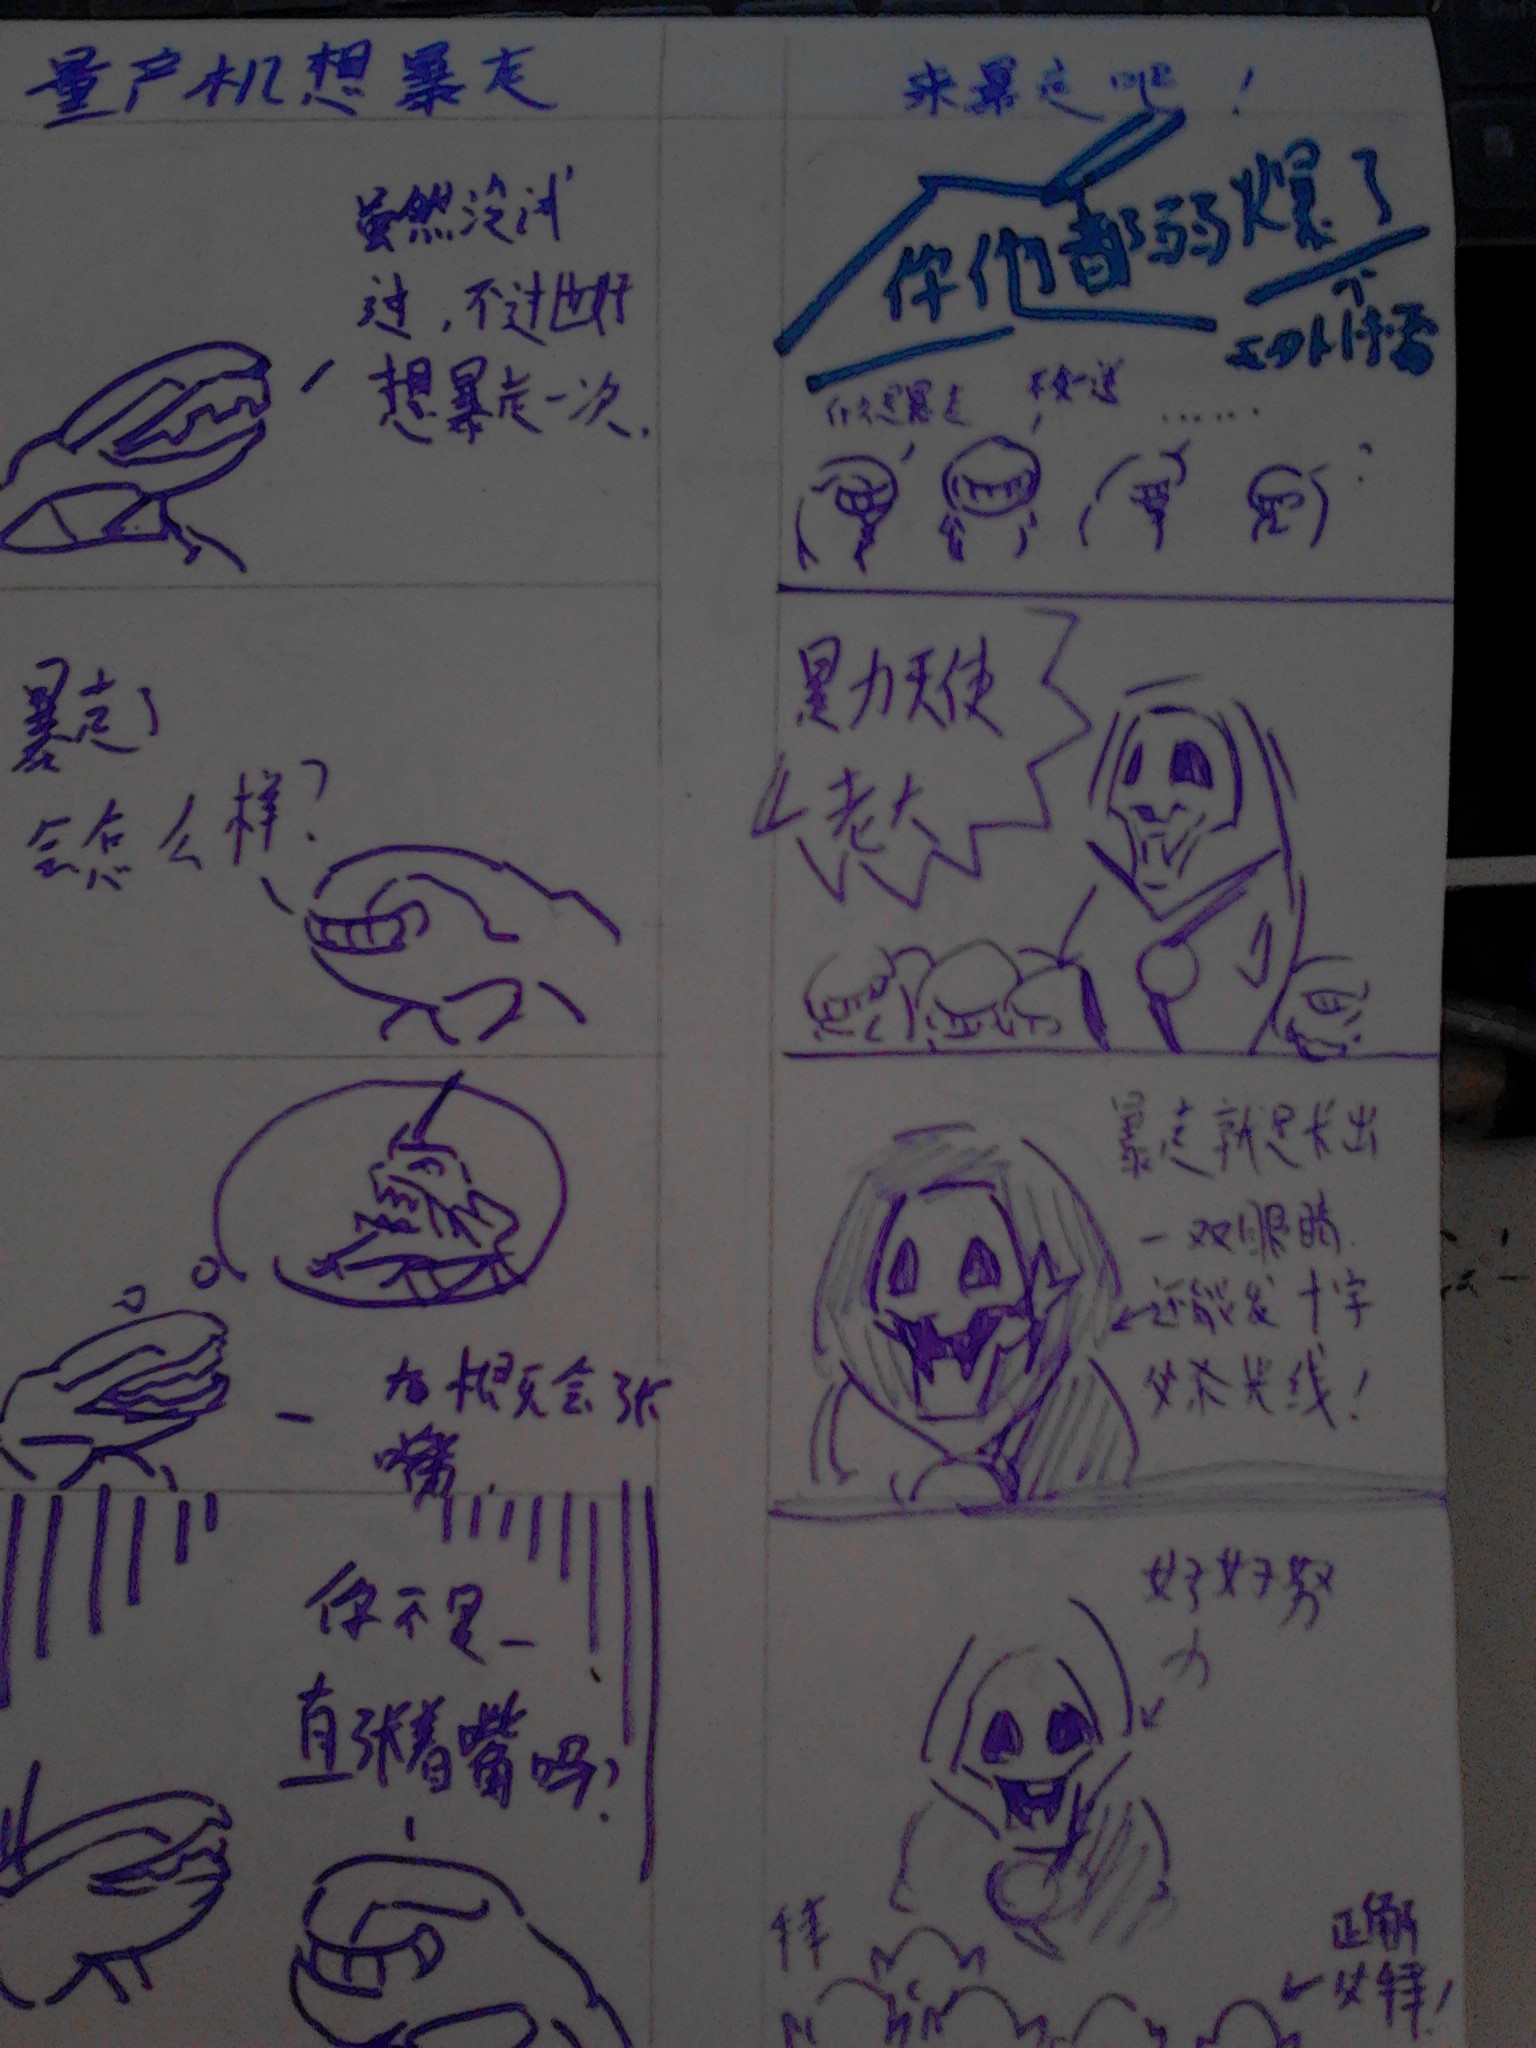 量产机想暴走
虽然没试
过，不过也好
想暴走一次。
暴走了
会怎么样？
大概是会张
嘴
你不是一
直张着嘴吗？
来暴走吧！
你他都弱爆了
什么是暴走
不知道
……
？
暴力天使
老大
暴走就是长出
一双眼睛
还能发十字
光线！
好好努
力
正解